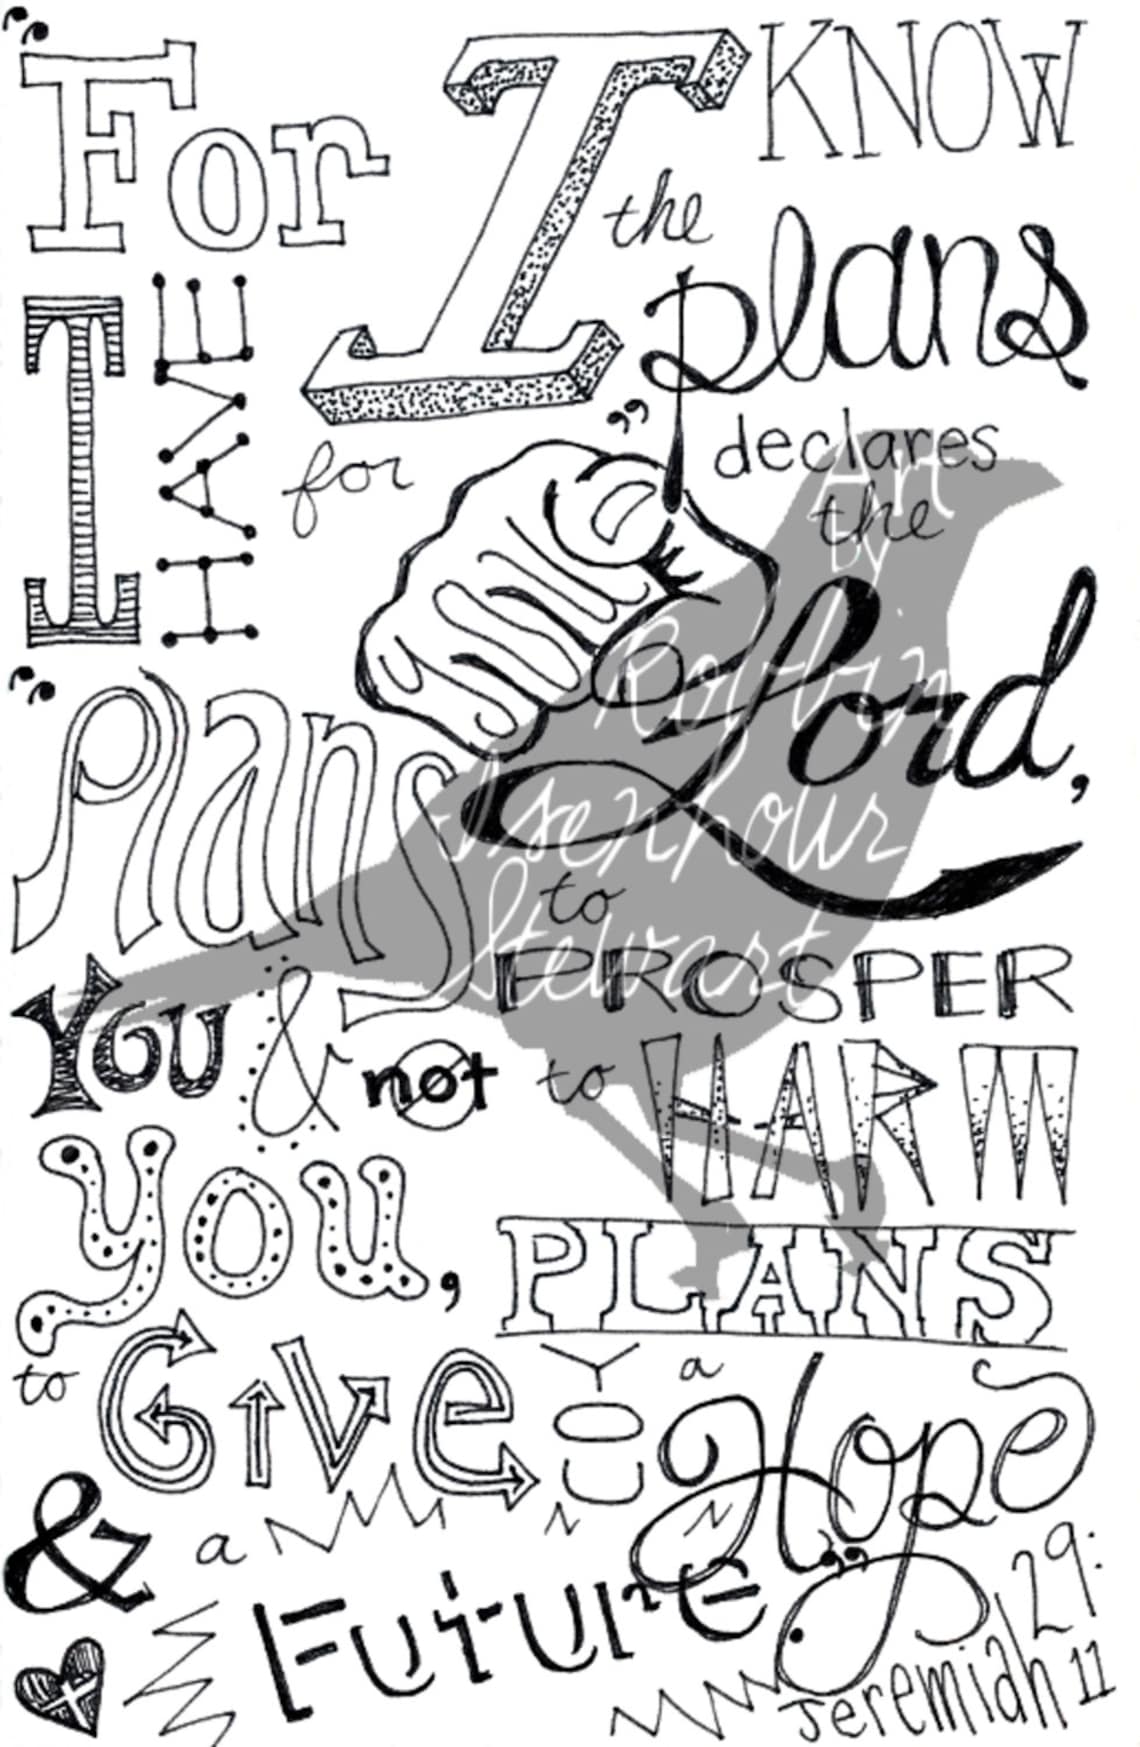 “For I KNOW
the plans
I HAVE for”
declares
the
Lord,
“Plans to PROSPER
You & not to HARM
you, PLANS
to Give YOU a Hope
& a Future”
Jeremiah 29:11
Art
by
Robbin
Isenhour
Stewart